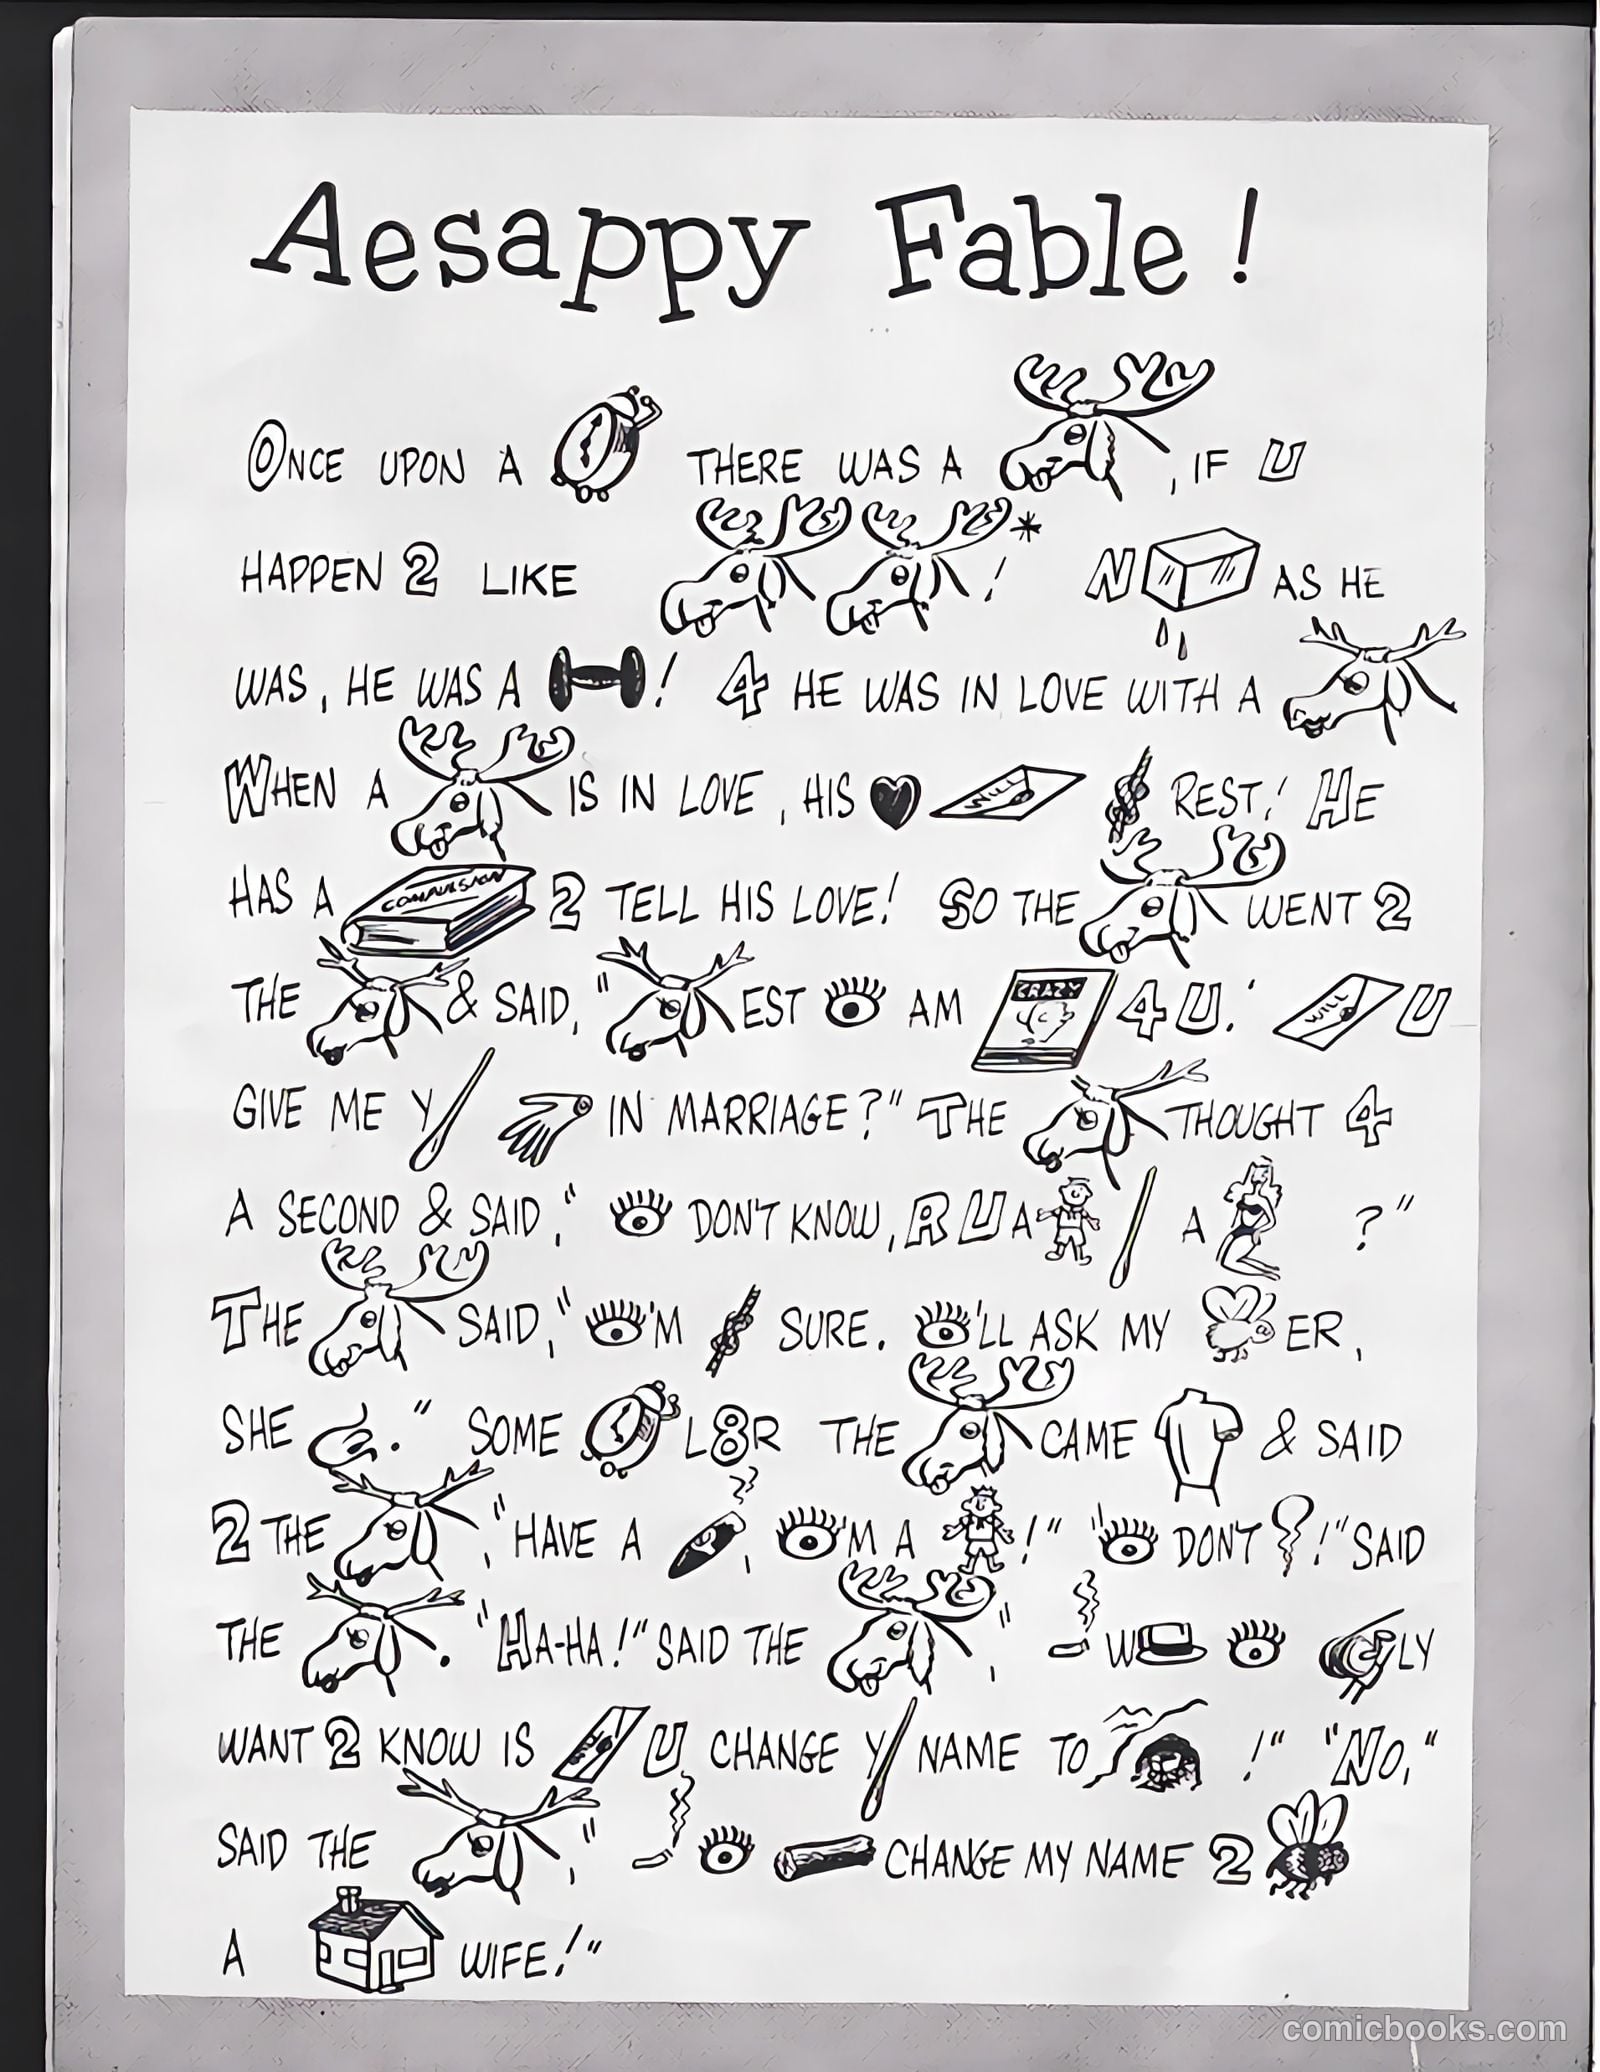 Aesappy Fable!
ONCE UPON A THERE WAS A , IF U
HAPPEN 2 LIKE !* N AS HE
WAS, HE WAS A ! 4 HE WAS IN LOVE WITH A
WHEN A IS IN LOVE, HIS WILL REST! HE
HAS A COMPULSION 2 TELL HIS LOVE! SO THE WENT 2
THE & SAID, "EST AM CRAZY 4 U! WILL U
GIVE ME Y IN MARRIAGE?" THE THOUGHT 4
A SECOND & SAID, " DON'T KNOW, R U A A ?"
THE SAID, "'M SURE. 'LL ASK MY ER,
SHE ." SOME L8R THE CAME & SAID
2 THE , "HAVE A , 'M A !" " DON'T !" SAID
THE . "HA-HA!" SAID THE , " W LY
WANT 2 KNOW IS WILL U CHANGE Y NAME TO !" "NO,"
SAID THE , " CHANGE MY NAME 2
A WIFE!"
comicbooks.com